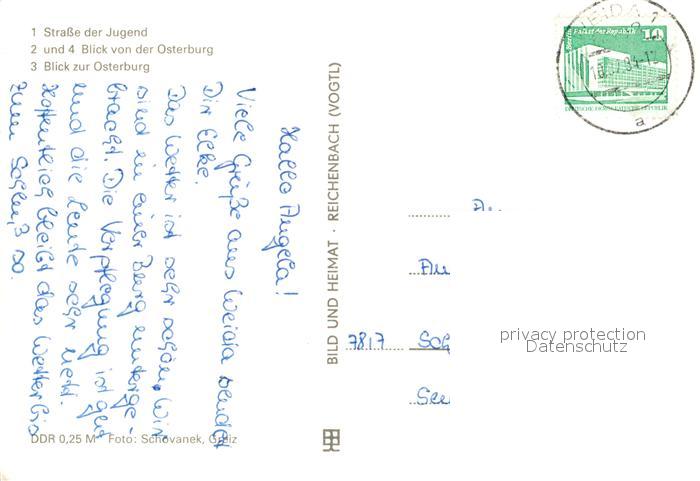 1 Straße der Jugend
2 und 4 Blick von der Osterburg
3 Blick zur Osterburg
Hallo Angela!
Viele Grüße aus Weida sendet
Dir Elke.
Das Wetter ist sehr schön. Wir
sind in einer Burg unterge-
bracht. Die Verpflegung ist gut
und die Leute sehr nett.
Hoffentlich bleibt das Wetter bis
zum Schluß so.
DDR 0,25 M Foto: Schovanek, Greiz
BILD UND HEIMAT · REICHENBACH (VOGTL)
WEIDA 1
a
Berlin Palast der Republik
10
DEUTSCHE DEMOKRATISCHE REPUBLIK
A..
Au
7817 Sch
See
privacy protection
Datenschutz